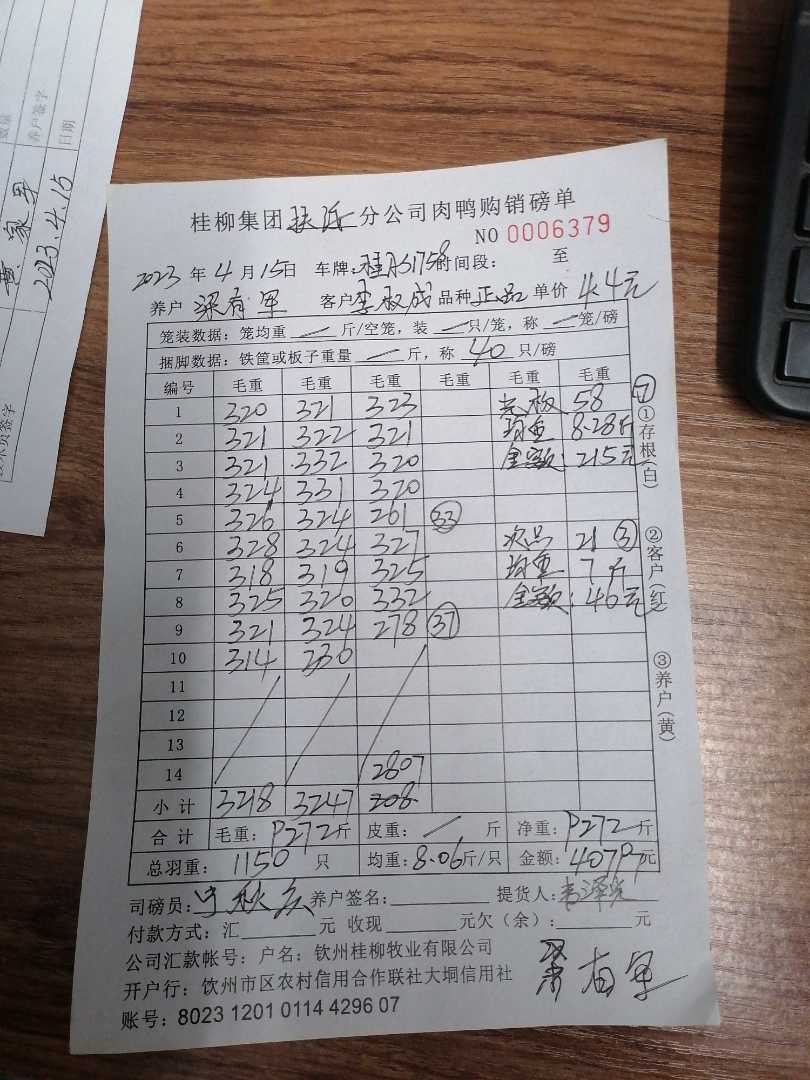 数量
养户签字
日期
黄家军
2023.4.15
技术员签字
桂柳集团 分公司肉鸭购销磅单
NO 0006379
2023年4月15日 车牌: 时间段: 至
养户 梁有军 客户李权成 品种正品 单价4.4元
笼装数据：笼均重 — 斤/空笼，装 — 只/笼，称 — 笼/磅
捆脚数据：铁筐或板子重量 — 斤，称 40 只/磅
编号 毛重 毛重 毛重 毛重 毛重 毛重
1 320 321 323 光板 58 ⑦
2 321 322 321 均重 8.28斤
3 321 332 320 金额: 215元
4 324 331 320
5 326 324 261 ㉝
6 328 324 327 次品 21 ③
7 318 319 325 均重 7斤
8 325 320 332 金额: 40元
9 321 324 278 ㊲
10 314 230
11
12
13
14 2807
小计 3218 3247
合计 毛重：9272斤 皮重：— 斤 净重：9272斤
总羽重：1150 只 均重：8.06斤/只 金额：40797元
司磅员： 养户签名： 提货人：
付款方式：汇 元 收现 元欠（余）： 元
公司汇款帐号：户名：钦州桂柳牧业有限公司
开户行：钦州市区农村信用合作联社大垌信用社
账号：8023 1201 0114 4296 07
梁有军
①存根(白)
②客户(红)
③养户(黄)